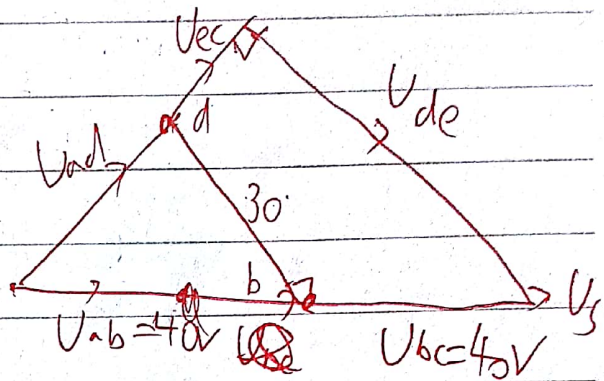 Uec
d
Ude
Uad
30
b
Us
Uab=40V
Ubc=40V